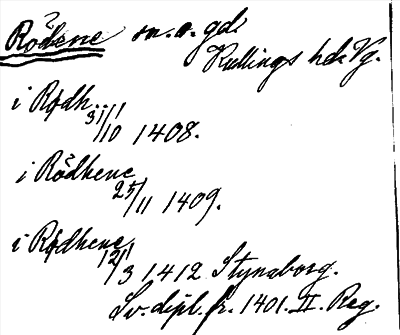 Rödene sn. o. gd.
Kullings hd. Vg.
i Rødh..
31/10 1408.
i Rödhene
25/11 1409.
i Rødhene
12/3 1412 Stynaborg.
Sv. dipl. fr. 1401. II. Reg.